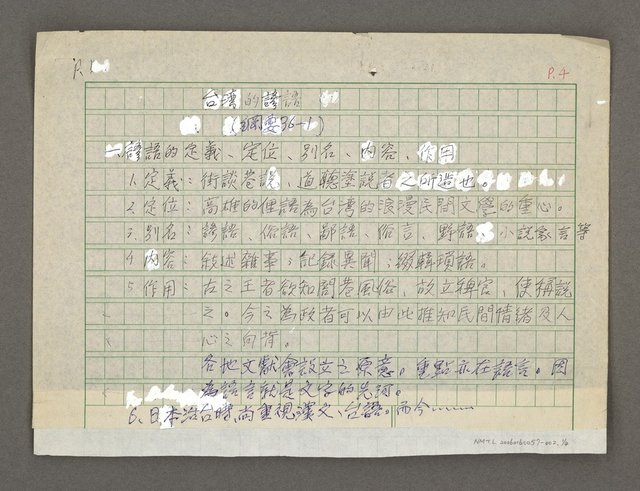 P.4
台灣的諺語
(綱要36-1)
一.諺語的定義、定位、別名、內容、作用
1.定義：街談巷說、道聽塗說者之所造也。
2.定位：高雄的俚語為台灣的浪漫民間文學的重心。
3.別名：諺語、俗語、鄙語、俗言、野語、小說家言等
4.內容：敘述雜事；記錄異聞；綴輯瑣語。
5.作用：古之王者欲知閭巷風俗、故立稗官、使稱說
之。今之為政者可以由此推知民間情緒及人
心之向背。
各地文獻會設立之原意。重點亦在語言。因
為語言就是文字的先河。
6、日本治台時,尚重視漢文、台語。而今……
NMTL 20060160057-002, 1/2